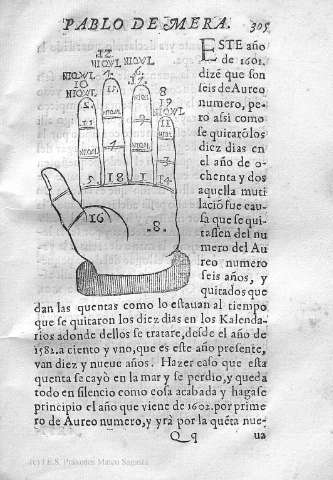 PABLO DE MERA. 305
ESTE año
de 1601.
dizẽ que son
seis de Aureo
numero, pe-
ro assi como
se quitarõ los
diez dias en
el año de o-
chenta y dos
aquella muti
laciõ fue cau-
sa que se qui-
tassen del nu
mero del Au
reo numero
seis años, y
quitados que
dan las quentas como lo estauan al tiempo
que se quitaron los diez dias en los Kalenda-
rios adonde dellos se tratare, desde el año de
1582. a ciento y vno, que es este año presente,
van diez y nueue años. Hazer caso que esta
quenta se cayò en la mar y se perdio, y queda
todo en silencio como cosa acabada y hagase
principio el año que viene de 1602. por prime
ro de Aureo numero, y yrà por la quẽta nue-
Qq ua
16
.8.
(c) I.E.S. Práxedes Mateo Sagasta